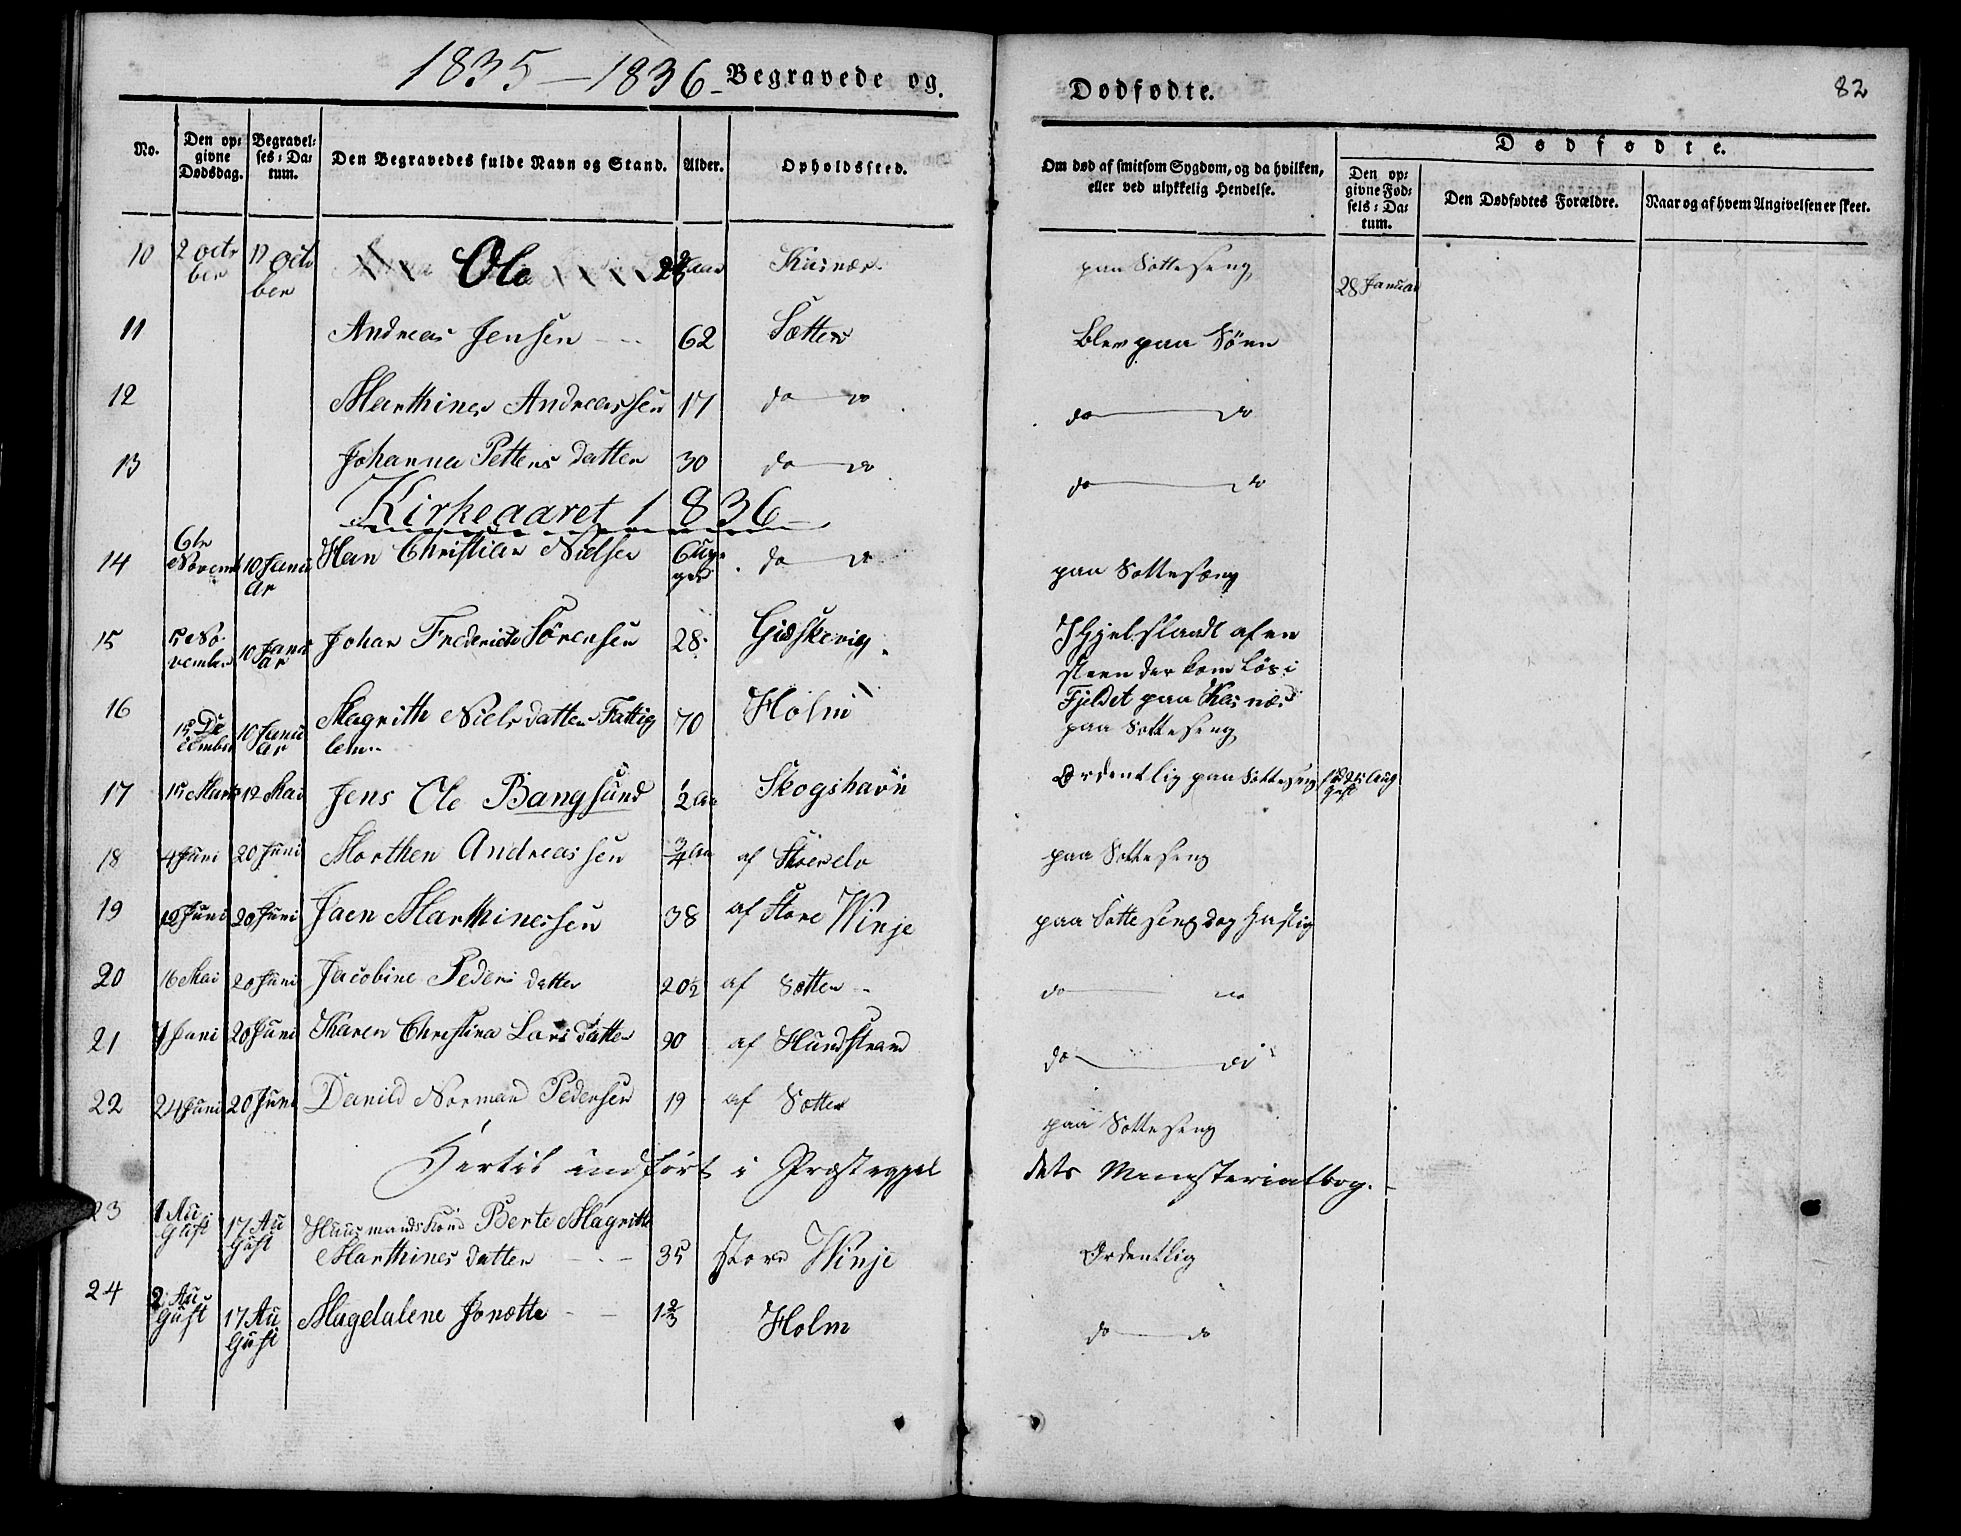 1835 — 1836 Begravede og
Dødfødte.
82
No.
Den opgivne Dødsdag.
Begravelses-Datum.
Den Begravedes fulde Navn og Stand.
Alder.
Opholdssted.
Om død af smitsom Sygdom, og da hvilken, eller ved ulykkelig Hendelse.
Dødfødte.
Den opgivne Fødsels-Datum.
Den Dødfødtes Forældre.
Naar og af hvem Angivelsen er skeet.
10 2 octo ber octo ber Ole paa Sotteseng 28 Januar
11 Andreas Jensen 62 Sætter Blev paa Söen
12 Marthines Andreassen 17 do do do do
13 Johanna Petters datter 30 do do do do
Kirkeaaret 1836
14 6te Novemb 10 Janu ar Han Christian Nielsen 6 Uge ger do do paa Sottesæng
15 No vember 10 Janu ar Johan Frederich Sörensen 28 Gisskevig Ihjelslaadt af en
steen der kom Lös i
Fjeldet paa Kasnæs
16 15 De cember 10 Janu ar Magrithe Niels datter Fattig 70 Holm paa Sotteseng
lem
17 15 Marts 12 Mai Jens Ole Bangsund ½ Aa Skogshavn Ordentlig paa Sotteseng
18 4 Juni 20 Juni Morthen Andreassen ¾ Aa af paa Sotteseng
19 10 Juni 20 Juni Jaen Marthinessen 38 af Store Winje paa Sotteseng dog hastig
20 16 Mai 20 Juni Jacobine Peders datter 20½ af Sætter do do
21 4 Juni 20 Juni Karen Christina Lars datter 90 af Hundstrand do do
22 24 Juni 20 Juni Daniel Normand Pedersen 19 af Sætter paa Sotteseng
Hertil indført i Præstegjel dets Ministerialbog.
23 1 Au gust 17 Au gust Huusmandskone Berte Magrithe
Marthines datter 35 store Winje Ordentlig
24 2 Au gust 17 Au gust Magdalene Jonette 1⅔ Holm do do